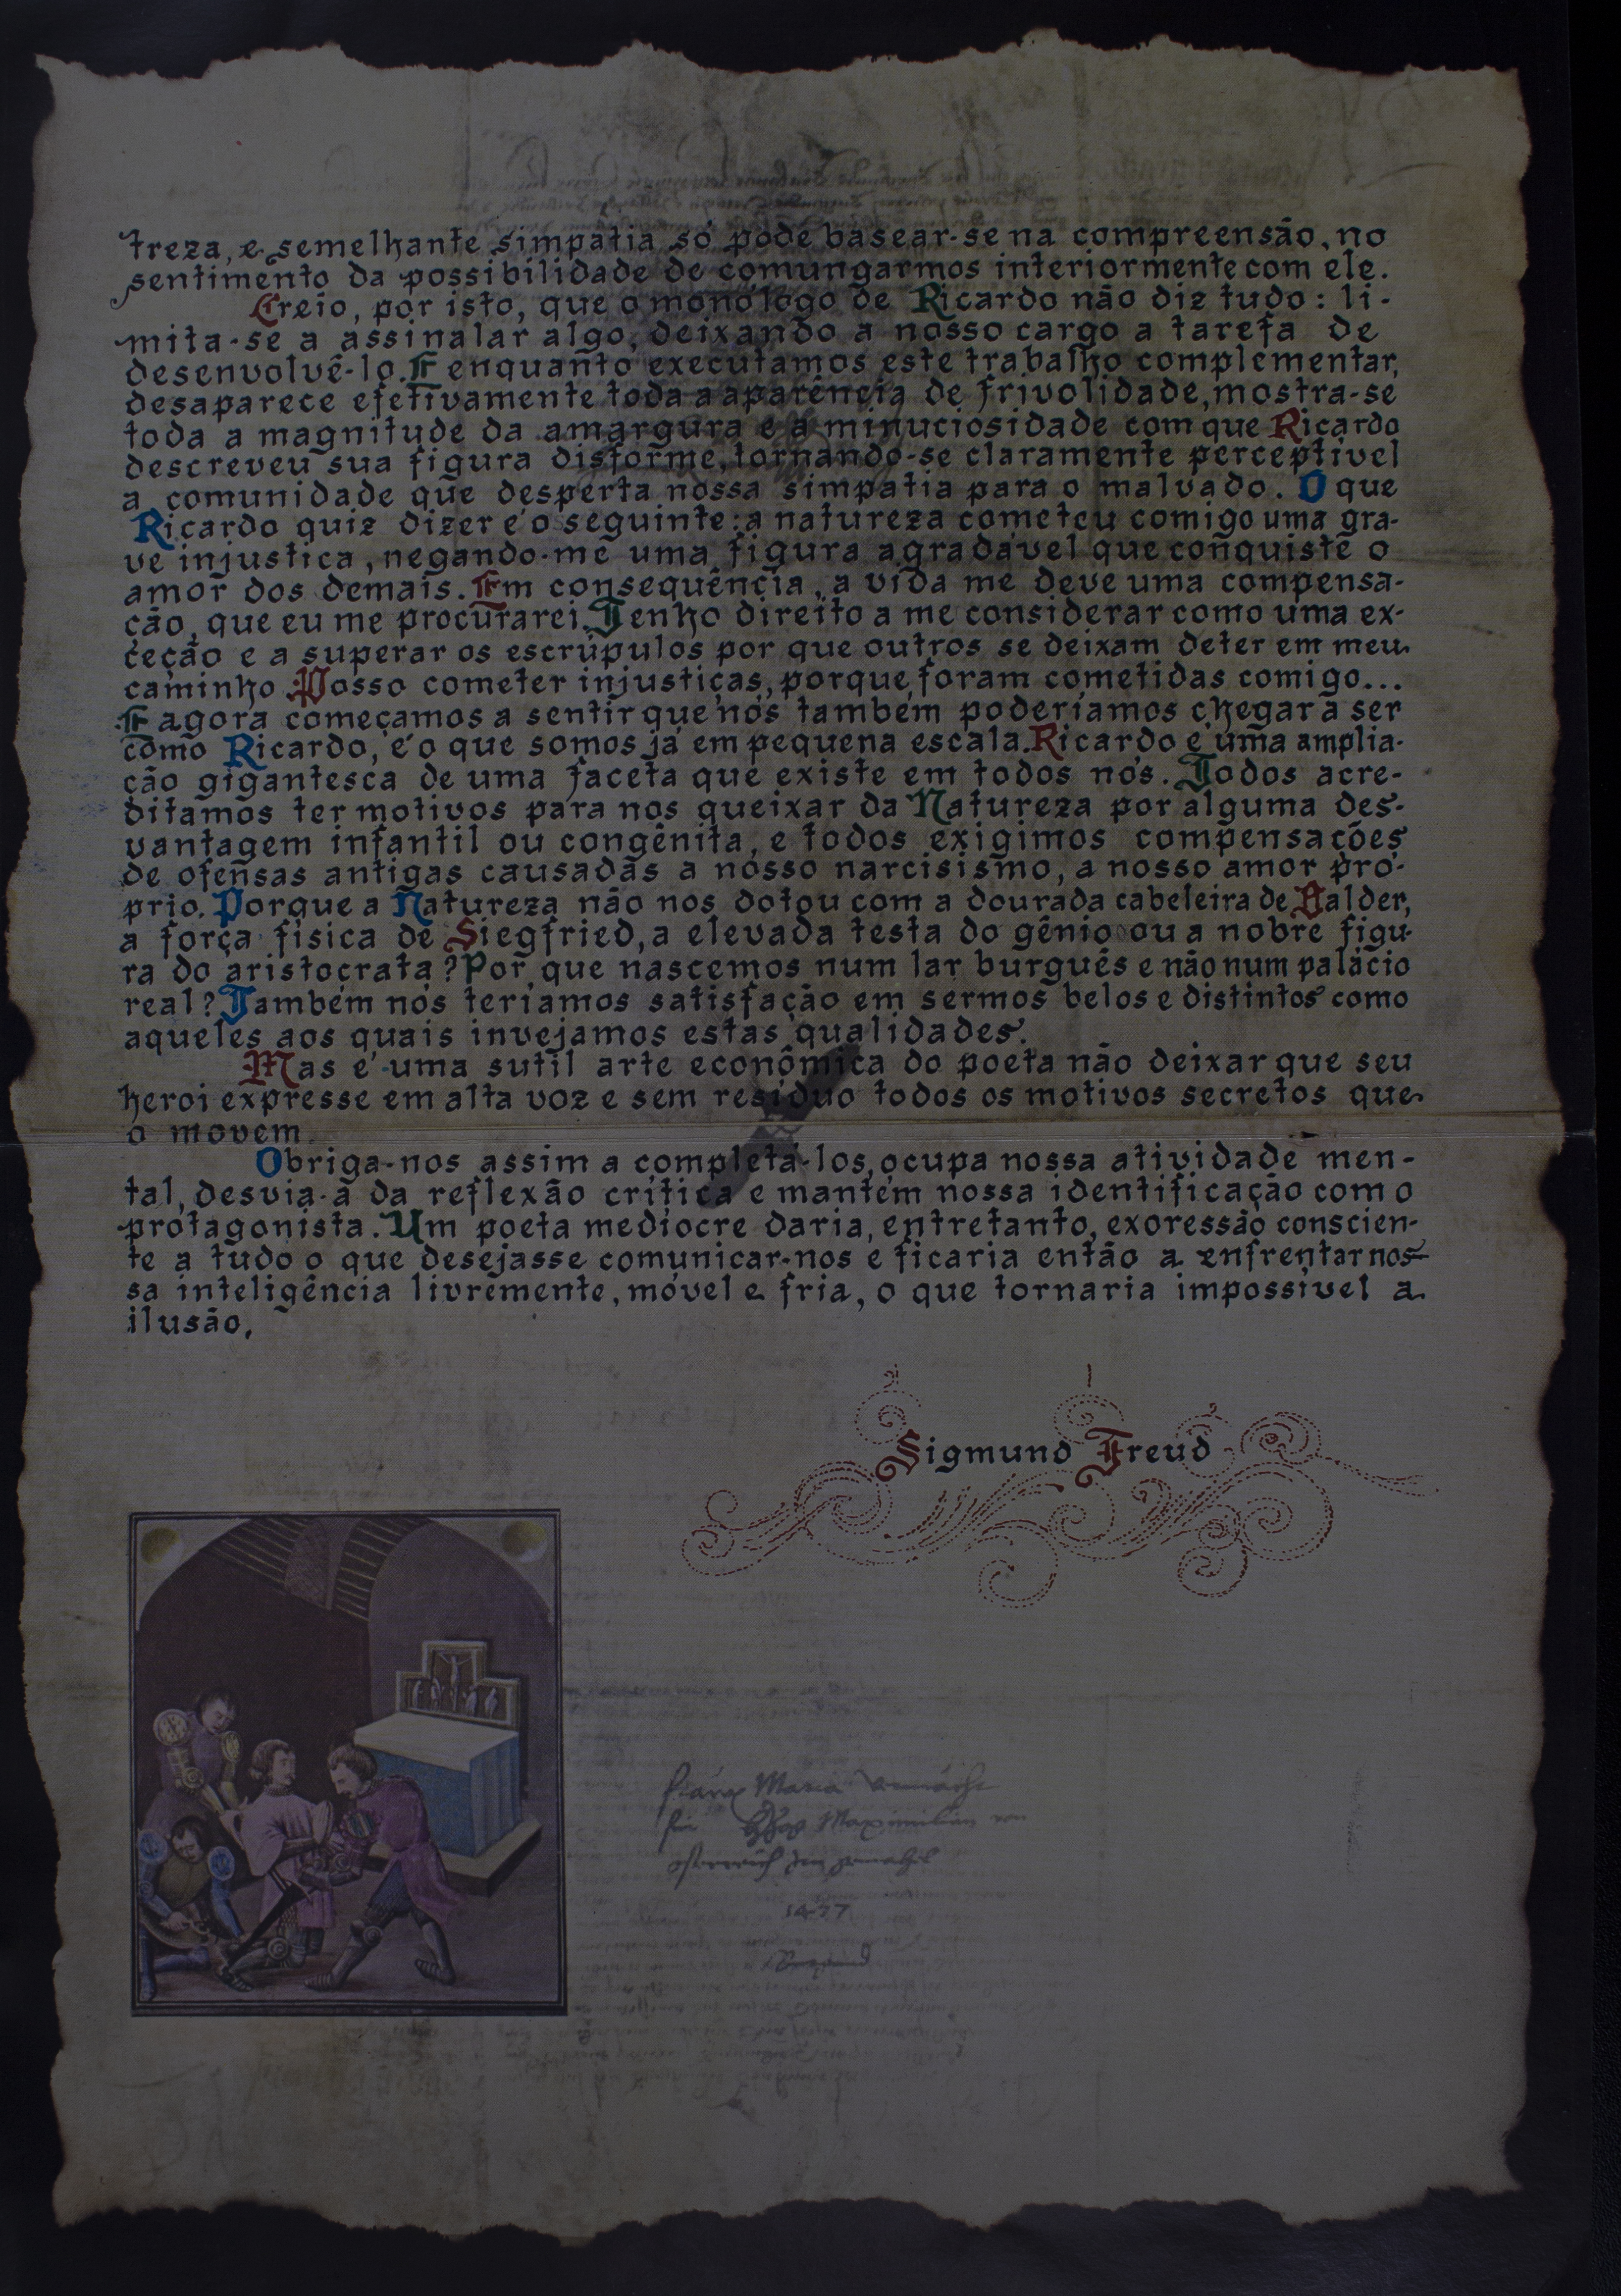 treza, e semelhante simpatia só pode basear-se na compreensão, no
sentimento da possibilidade de comungarmos interiormente com ele.
Creio, por isto, que o monólogo de Ricardo não diz tudo: li-
mita-se a assinalar algo, deixando a nosso cargo a tarefa de
desenvolvê-lo. E enquanto executamos este trabalho complementar,
desaparece efetivamente toda a aparência de frivolidade, mostra-se
toda a magnitude da amargura e a minuciosidade com que Ricardo
descreveu sua figura disforme, tornando-se claramente perceptível
a comunidade que desperta nossa simpatia para o malvado. O que
Ricardo quiz dizer é o seguinte: a natureza cometeu comigo uma gra-
ve injustica, negando-me uma figura agradável que conquiste o
amor dos demais. Em consequência, a vida me deve uma compensa-
ção, que eu me procurarei. Tenho direito a me considerar como uma ex-
ceção e a superar os escrúpulos por que outros se deixam deter em meu
caminho. Posso cometer injustiças, porque foram cometidas comigo...
E agora começamos a sentir que nós também poderíamos chegar a ser
como Ricardo, é o que somos já em pequena escala. Ricardo é uma amplia-
ção gigantesca de uma faceta que existe em todos nós. Todos acre-
ditamos ter motivos para nos queixar da Natureza por alguma des-
vantagem infantil ou congênita, e todos exigimos compensações
de ofensas antigas causadas a nosso narcisismo, a nosso amor pró-
prio. Porque a Natureza não nos dotou com a dourada cabeleira de Balder,
a força física de Siegfried, a elevada testa do gênio ou a nobre figu-
ra do aristocrata? Por que nascemos num lar burguês e não num palácio
real? Também nós teríamos satisfação em sermos belos e distintos como
aqueles aos quais invejamos estas qualidades.
Mas é uma sutil arte econômica do poeta não deixar que seu
heroi expresse em alta voz e sem resíduo todos os motivos secretos que
o movem.
Obriga-nos assim a completá-los, ocupa nossa atividade men-
tal, desvia-a da reflexão crítica e mantém nossa identificação com o
protagonista. Um poeta medíocre daria, entretanto, exoressão conscien-
te a tudo o que desejasse comunicar-nos e ficaria então a enfrentar nos-
sa inteligência livremente, móvel e fria, o que tornaria impossível a
ilusão,
Sigmund Freud
Maria
Maximilian von
1477